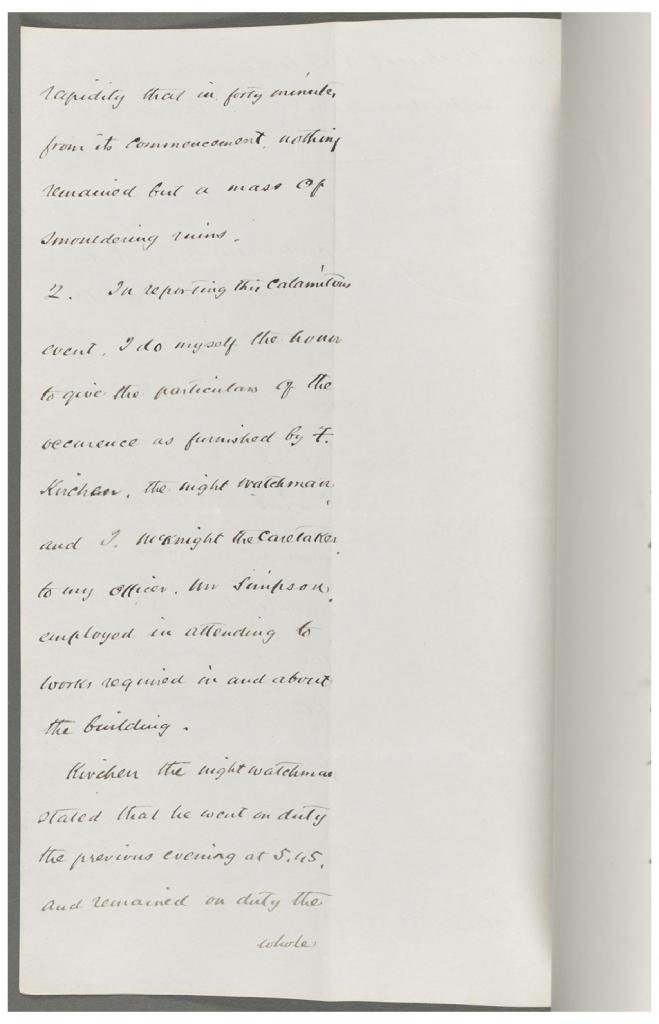 rapidity that in forty minutes
from its commencement, nothing
remained but a mass of
smouldering ruins.
2. In reporting this calamitous
event, I do myself the honor
to give the particulars of the
occurence as furnished by F.
Kirchen, the night watchman
and J. McKnight the Caretaker
to my officer, Mr Simpson,
employed in attending to
works required in and about
the building.
Kirchen the night watchman
stated that he went on duty
the previous evening at 5.45.
and remained on duty the
whole